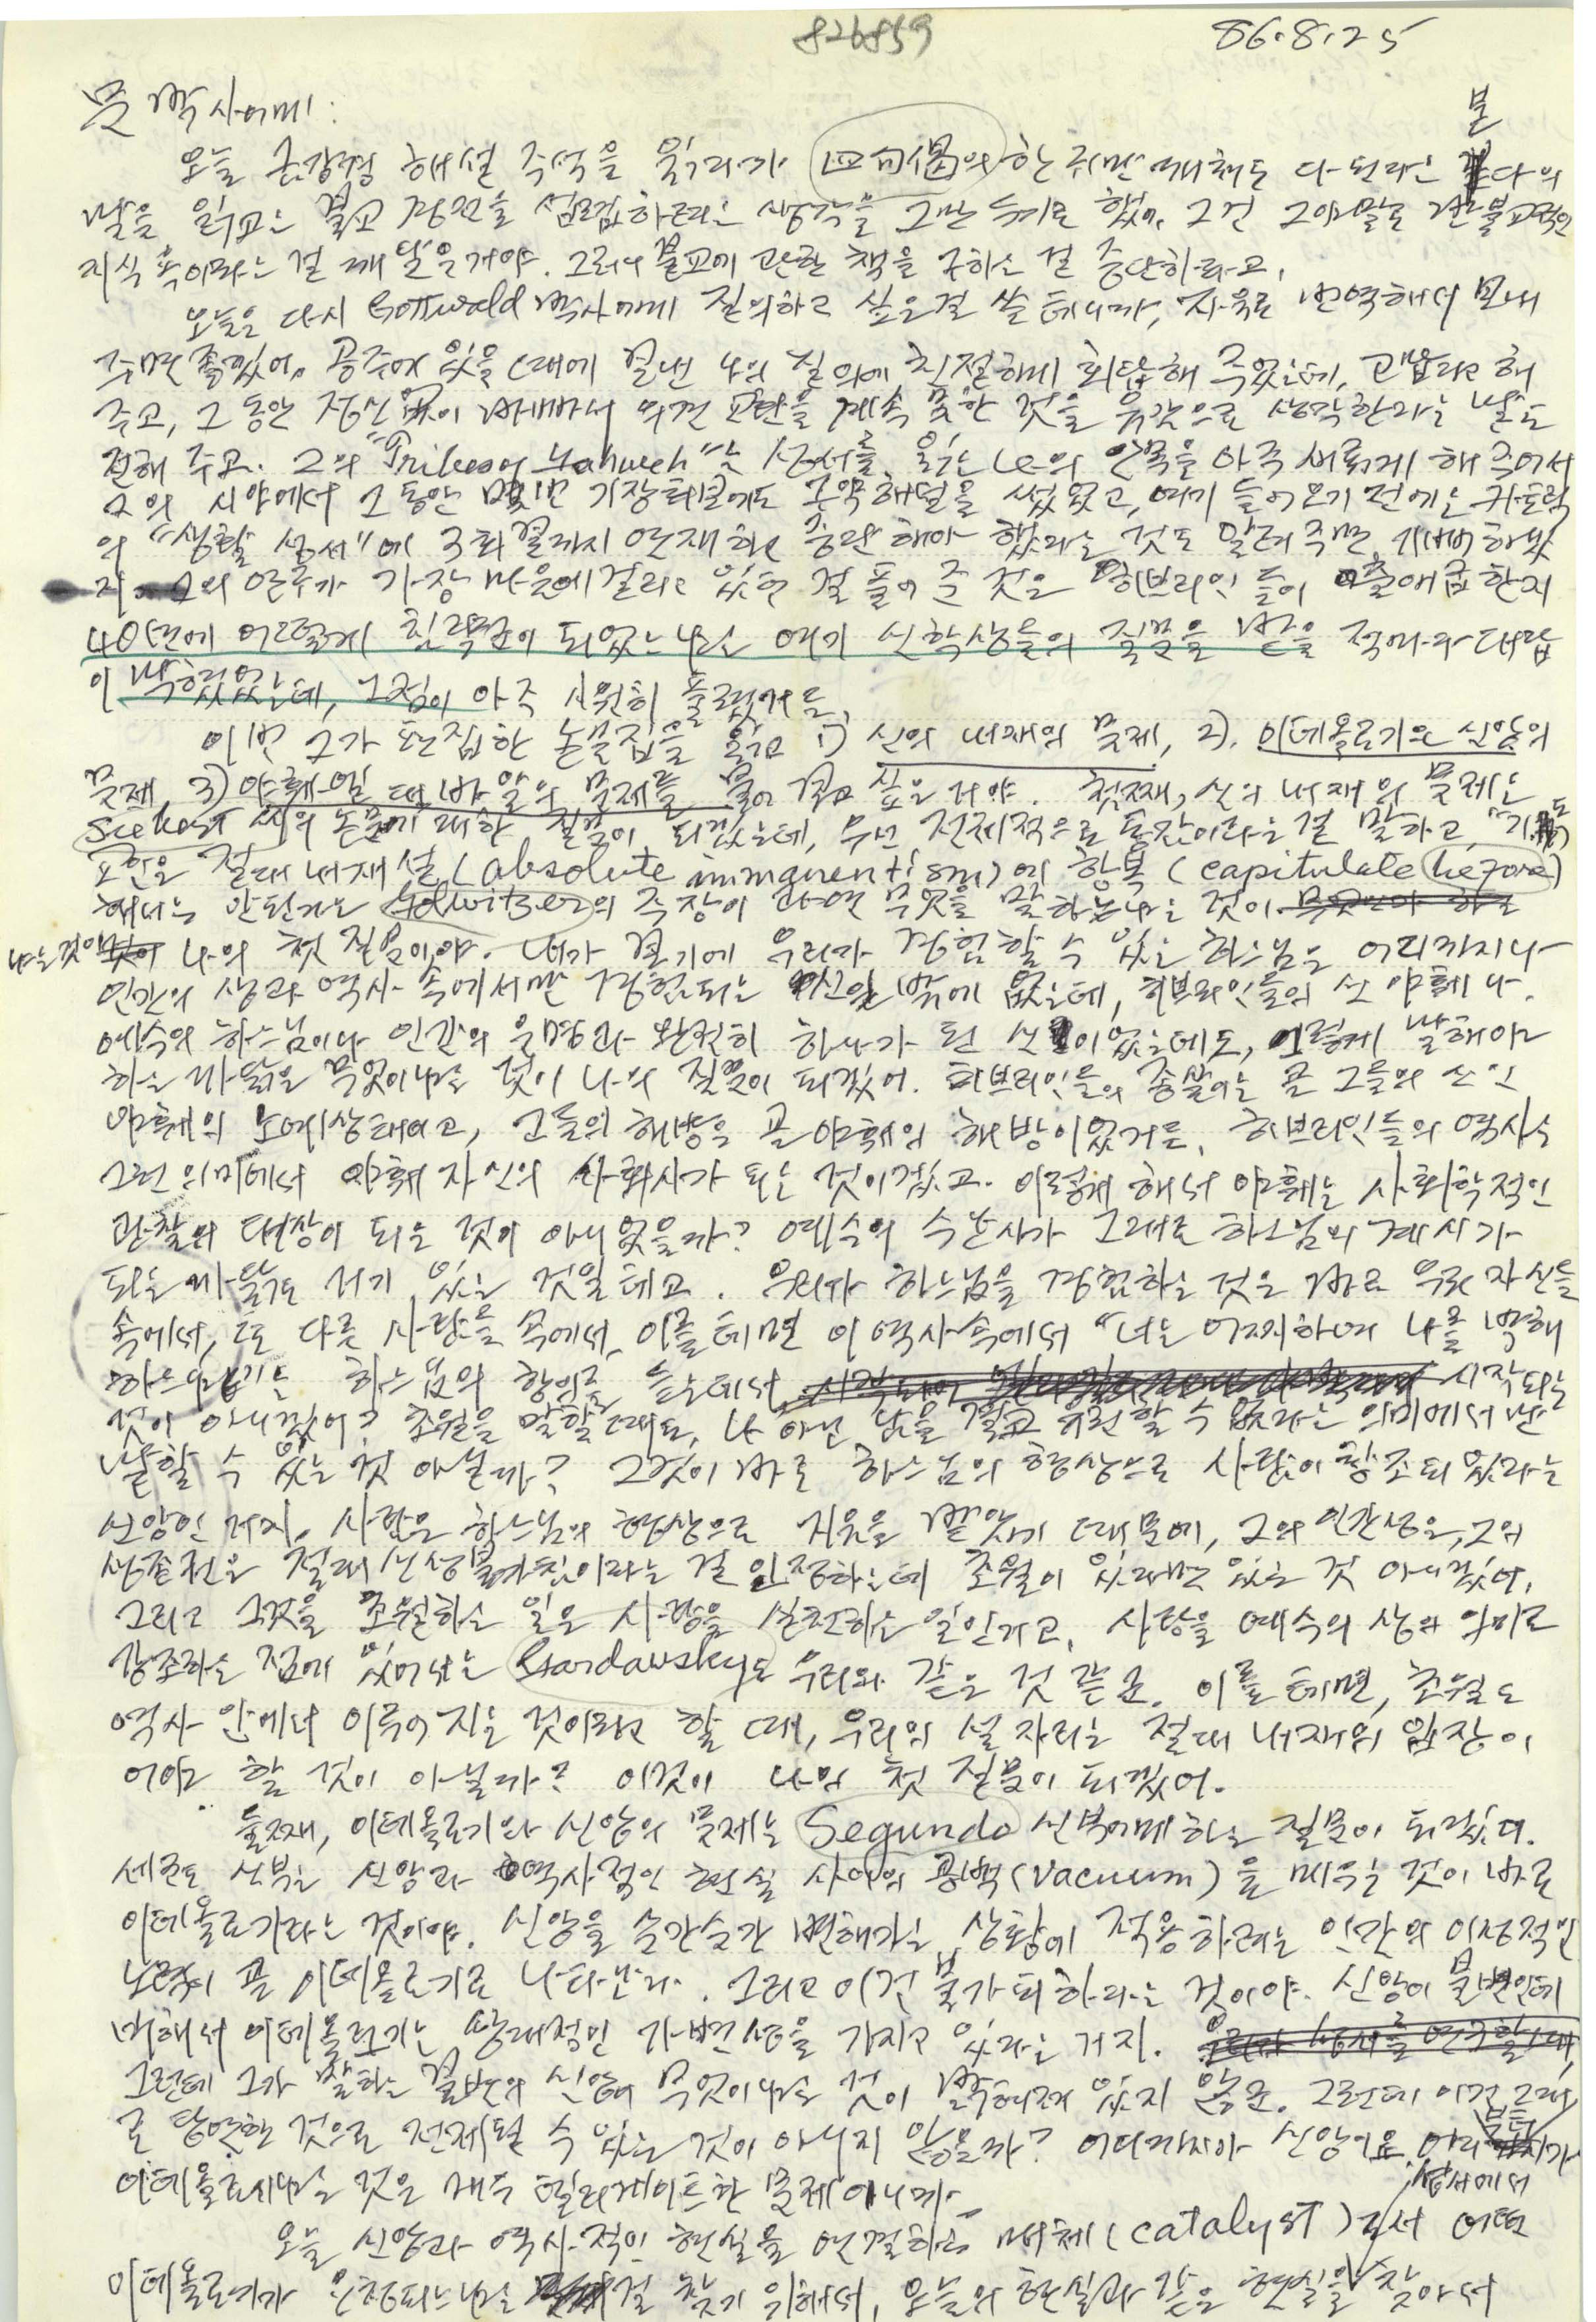 826859
86.8.25
문 박사에게:
오늘 금강경 해설 주석을 읽다가 四句偈의 한 귀만 깨쳐도 다 된다는 붓다의
말을 읽고는 불교 경전을 섭렵하려는 생각을 그만 두기로 했어. 그건 그야말로 반불교적인
지식욕이라는 걸 깨달은 거야. 그러니 불교에 관한 책을 구하는 걸 중단하라고.
오늘은 다시 Gottwald 박사에게 질의하고 싶은 걸 쓸 테니까, 자육로 번역해서 보내
주면 좋겠어. 공주에 있을 때에 보낸 나의 질의에 친절하게 회답해 주었는데, 고맙다고 해
주고, 그 동안 정신없이 바빠서 의견 교환을 계속 못한 것을 유감으로 생각한다는 말도
전해 주고. 그의 "Tribes of Yahweh"는 성서를 읽는 나의 안목을 아주 새롭게 해 주어서
그의 시야에서 그 동안 몇번 기장회보에도 구약해설을 썼었고, 여기 들어오기 전에는 카톨릭
의 "생활 성서"에 3회분까지 연재하고 중단해야 했다는 것도 알려 주면 기뻐하겠
지. 그의 연구가 가장 마음에 걸리고 있던 걸 풀어 준 것은 히브리인들이 출애급한지
40년에 어떻게 침략군이 되었느냐는 여기 신학생들의 질문을 받을 적마다 대답
이 막혔었는데, 그점이 아주 시원히 풀렸거든.
이번 그가 편집한 논문집을 읽고 1) 신의 내재의 문제, 2). 이데올로기와 신앙의
문제, 3) 야훼와 대 바알의 문제를 물어 보고 싶은 거야. 첫째, 신의 내재의 문제는
씨의 논문에 대한 질문이 되겠는데, 우선 전체적으로 동감이라는 걸 말하고,
표현은 절대 내재설 (absolute immanentism)에 항복 (capitulate before)
해서는 안된다는 Gollwitzer의 주장이 과연 무엇을 말하느냐는 것이
나의 첫 질문이야. 내가 보기에 우리가 경험할 수 있는 하느님은 어디까지나
인간의 삶과 역사 속에서만 경험되는 신일 밖에 없는데, 히브리인들의 신 야훼나,
예수의 하느님이나 인간의 운명과 완전히 하나가 된 신이었는데도, 이렇게 말해야
하는 까닭은 무엇이냐는 것이 나의 질문이 되겠어. 히브리인들의 종살이는 곧 그들의 신인
야훼의 노예상태였고, 그들의 해방은 곧 야훼의 해방이었거든. 히브리인들의 역사는
그런 의미에서 야훼 자신의 사회사가 되는 것이겠고. 이렇게 해서 야훼는 사회학적인
관찰의 대상이 되는 것이 아니었을까? 예수의 수난사가 그대로 하느님의 계시가
되는 까닭도 거기 있는 것일 테고. 우리가 하느님을 경험하는 것은 바로 우리 자신들
속에서, 또 다른 사람들 속에서, 이를테면 이 역사 속에서 "너는 어찌하여 나를 박해
하느냐"는 하느님의 항의를 듣는데서 시작되는
것이 아니겠어? 초월을 말할 때도, 나 아닌 남을 결코 지원할 수 없다는 의미에서만
말할 수 있는 것 아닐까? 그것이 바로 하느님의 형상으로 사람이 창조되었다는
신앙인 거지. 사람은 하느님의 형상으로 지음을 받았기 때문에, 그의 인간성은, 그의
생존권은 절대 신성불가침이라는 걸 인정하는데 초월이 있다면 있는 것 아니겠어.
그리고 그것을 초월하는 일은 사랑을 실천하는 일인 거고, 사랑을 예수의 삶의 의미로
강조하는 점에 있어서는 Gardawsky도 우리와 같은 것 같군. 이를테면, 초월도
역사 안에서 이루어지는 것이라고 할 때, 우리의 설 자리는 절대 내재의 입장이
어야 할 것이 아닐까? 이것이 나의 첫 질문이 되겠어.
둘째, 이데올로기와 신앙의 문제는 Segundo 신부에게 하는 질문이 되겠다.
세군도 신부는 신앙과 역사적인 현실 사이의 공백 (vacuum)을 메우는 것이 바로
이데올로기라는 것이야. 신앙을 순간순간 변해가는 상황에 적용하려는 인간의 이성적인
노력이 곧 이데올로기로 나타난다. 그리고 이건 불가피하다는 것이야. 신앙이 불변인데
비해서 이데올로기는 상대적인 가변성을 가지고 있다는 거지.
그런데 그가 말하는 불변의 신앙이 무엇이냐는 것이 밝혀져 있지 않군. 그런데 이건 그대
로 당연한 것으로 전제될 수 있는 것이 아니지 않을까? 어디까지가 신앙이요, 어디부터가
이데올로기냐는 것은 매우 델리케이트한 문제이니까.
오늘 신앙과 역사적인 현실을 연결하는 매체 (catalyst)로서 어떤
이데올로기가 요청되느냐는 걸 찾기 위해서, 오늘의 현실과 같은 현실을 성서에서 찾아서